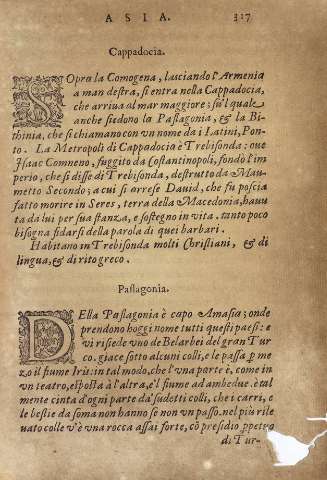 ASIA. 317
Cappadocia.
SOpra la Comogena, lasciando l'Armenia
a man destra, si entra nella Cappadocia,
che arriua al mar maggiore; su'l quale
anche siedono la Paflagonia, & la Bi-
thinia, che si chiamano con vn nome da i Latini, Pon-
to. La Metropoli di Cappadocia è Trebisonda: oue
Isaac Comneno, fuggito da Costantinopoli, fondò l'im
perio, che si disse di Trebisonda, destrutto da Mau-
metto Secondo; a cui si arrese Dauid, che fu poscia
fatto morire in Seres, terra della Macedonia, hauu
ta da lui per sua stanza, e sostegno in vita. tanto poco
bisogna fidarsi della parola di quei barbari.
Habitano in Trebisonda molti Christiani, & di
lingua, & di rito greco.
Paflagonia.
DElla Paflagonia è capo Amasia; onde
prendono hoggi nome tutti questi paesi: e
vi risiede vno de Belarbei del gran Tur
co. giace sotto alcuni colli, e le passa p me
zo il fiume Iris: in tal modo, che l'vna parte è, come in
vn teatro, esposta à l'altra, e'l fiume ad ambedue. è tal
mente cinta d'ogni parte da' sudetti colli, che i carri, e
le bestie da soma non hanno se non vn passo. nel piu rile
uato colle v'è vna rocca assai forte, cō presidio ppetuo
di Tur-